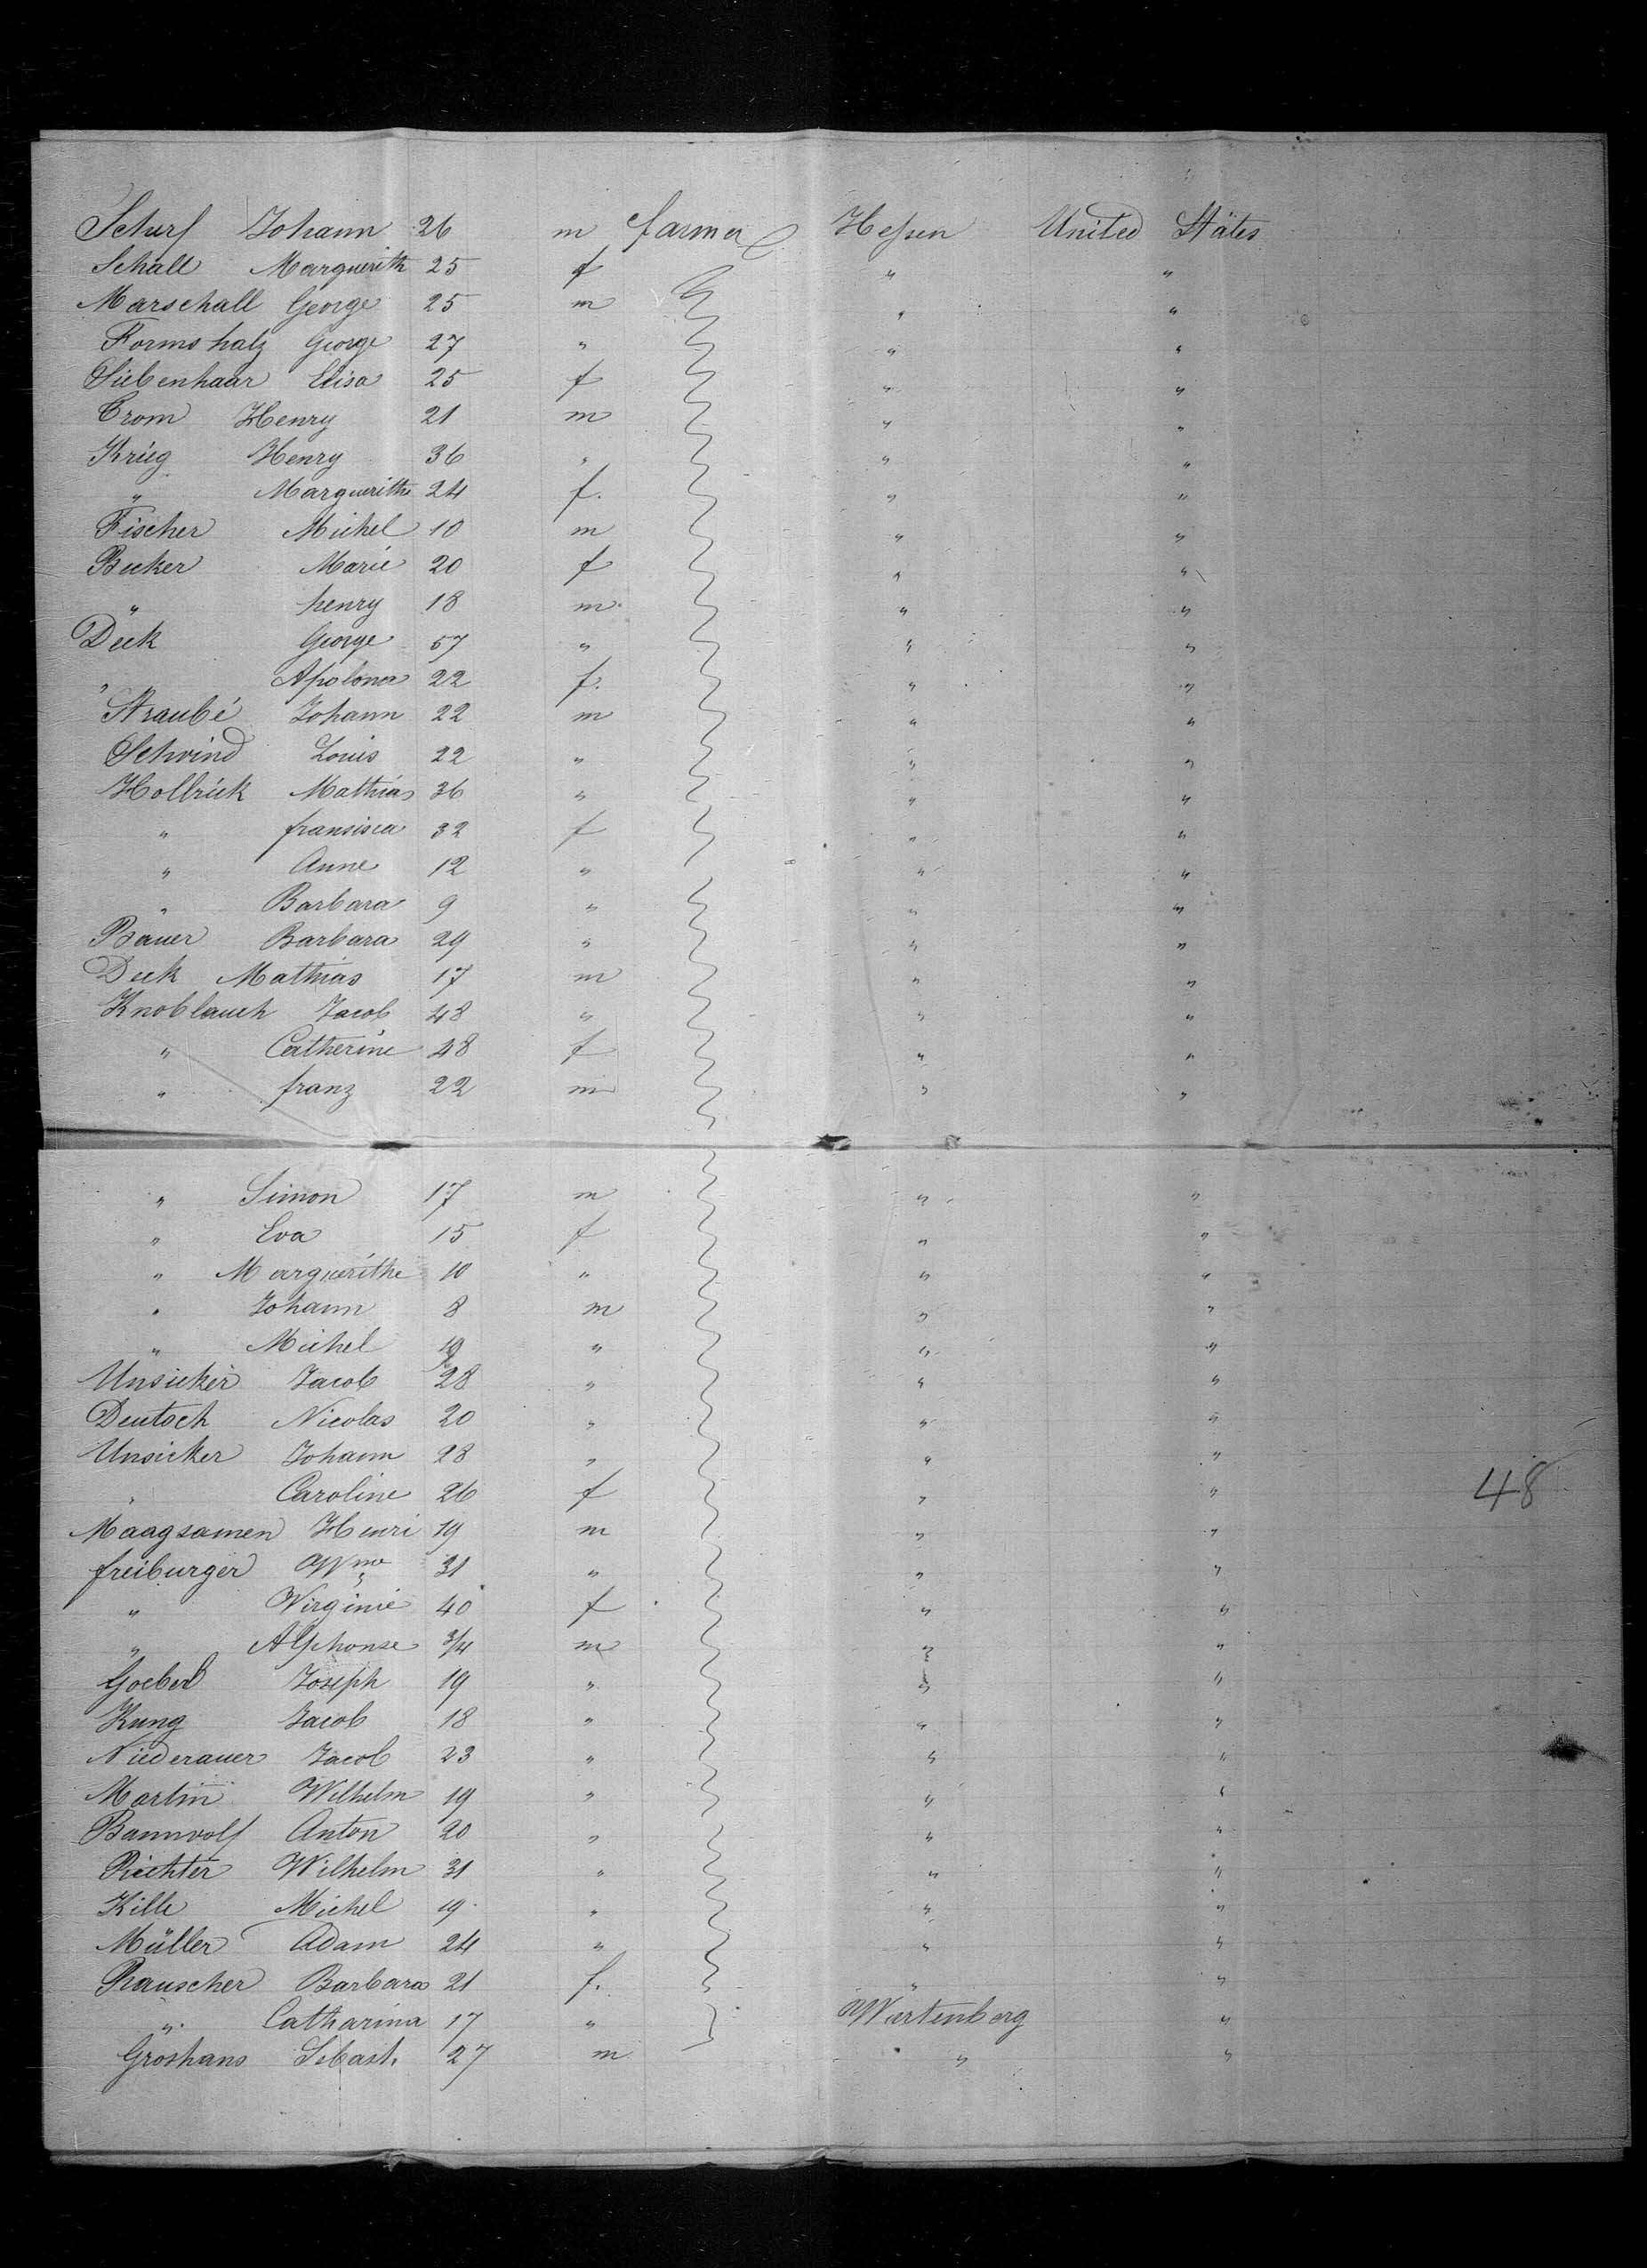 Scharf Johann 26 m farmer Hessen United Stätes
Schall Marguerith 25 f " "
Marschall George 25 m " "
Formshalz George 27 " " "
Siebenhaar Elisa 25 f " "
Crom Henry 21 m " "
Krieg Henry 36 " " "
" Marguerithe 24 f. " "
Fischer Michel 10 m " "
Becker Marie 20 f " "
" henry 18 m. " "
Deck George 57 " " "
" Apolona 22 f. " "
Straubé Johann 22 m " "
Schwind Louis 22 " " "
Hollrick Mathias 36 " " "
" fransisca 32 f " "
" Anne 12 " " "
" Barbara 9 " " "
Bauer Barbara 29 " " "
Deck Mathias 17 m " "
Knoblauch Jacob 48 " " "
" Catherine 48 f " "
" franz 22 m " "
" Simon 17 m " "
" Eva 15 f " "
" Marguerithe 10 " " "
" Johann 8 m " "
" Michel " " "
Unsicker Jacob 28 " " "
Deutsch Nicolas 20 " " "
Unsicker Johann 28 " " "
" Caroline 26 f " " 48
Maagsamen Henri 19 m " "
freiburger Wm 31 " " "
" Virginie 40 f " "
" Alphonse 3/4 m " "
Goebel Joseph 19 " " "
Kung Jacob 18 " " "
Niederauer Jacob 23 " " "
Martin Wilhelm 19 " " "
Bannwolf Anton 20 " " "
Richter Wilhelm 31 " " "
Kille Michel 19 " " "
Müller Adam 24 " " "
Rauscher Barbara 21 f. " "
" Catharina 17 " Wurtenberg "
Groshans Sebast. 27 m " "